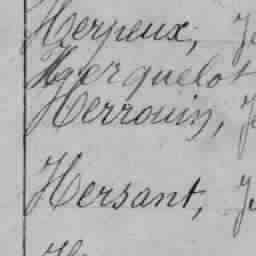 Herpeux, Je
Herquelot
Herrouin, Je
Hersant, Je